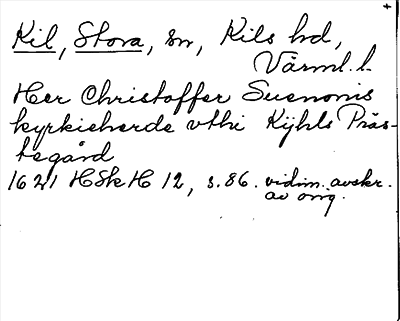 Kil, Stora, sn, Kils hd,
Värml. l.
Her Christoffer Suenonis
kyrkieherde vthi Kÿhls Präs-
tegård
1621 HSkH 12, s. 86. vidim. avskr.
av orig.